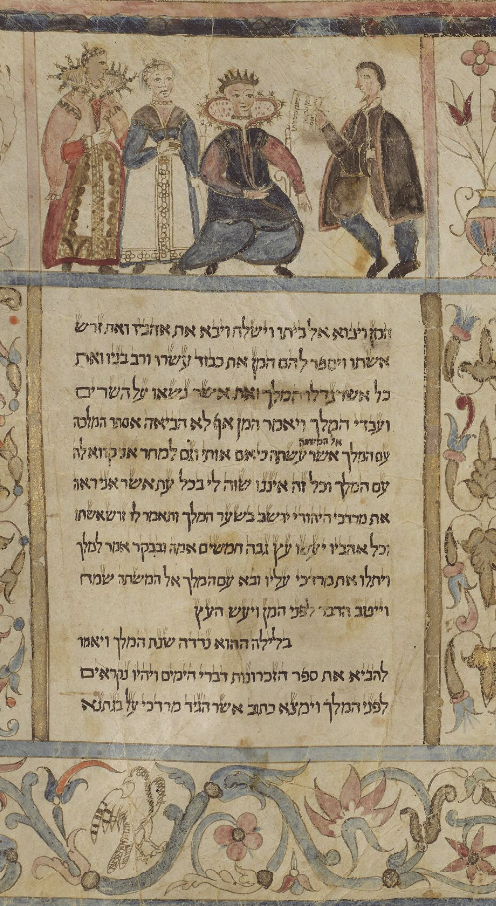 המן ויבוא אל ביתו וישלח ויבא את אהביו ואת זרש
אשתו ויספר להם המן את כבוד עשרו ורב בניו ואת
כל אשר גדלו המלך ואת אשר נשאו על השרים
ועבדי המלך ויאמר המן אף לא הביאה אסתר המלכה
אל המשתה
עם המלך אשר עשתה כי אם אותי וגם למחר אני קרוא לה
עם המלך וכל זה איננו שוה לי בכל עת אשר אני ראה
את מרדכי היהודי יושב בשער המלך ותאמר לו זרש אשתו
וכל אהביו יעשו עץ גבה חמשים אמה ובבקר אמר למלך
ויתלו את מרדכי עליו ובא עם המלך אל המשתה שמח
וייטב הדבר לפני המן ויעש העץ
בלילה ההוא נדדה שנת המלך ויאמר
להביא את ספר הזכרונות דברי הימים ויהיו נקראים
לפני המלך וימצא כתוב אשר הגיד מרדכי על בגתנא